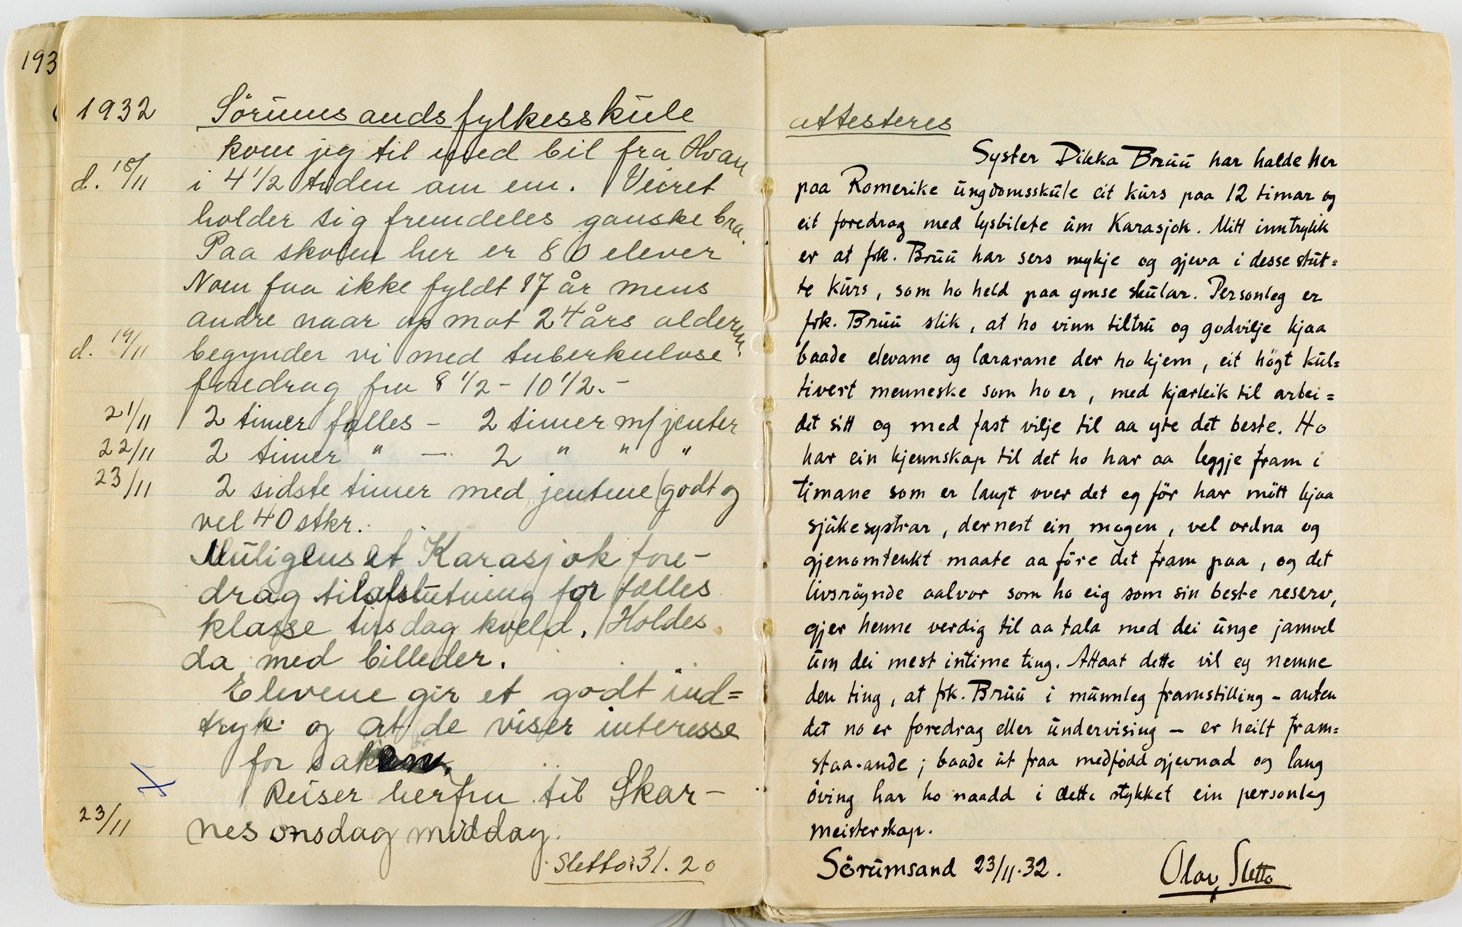 193
1932 Sörumsandsfylkesskule
kom jeg til med bil fra Hvam
d. 18/11 i 4 1/2 tiden om em. Veiret
holder sig fremdeles ganske bra.
Paa skolen her er 80 elever
Noen faa ikke fyldt 17 år mens
andre naar op mot 24 års alderen.
d. 19/11 begynder vi med tuberkulose
foredrag fra 8 1/2 - 10 1/2. -
21/11 2 timer felles - 2 timer m/jenter
22/11 2 timer " - 2 " " "
23/11 2 sidste timer med jentene (godt og
vel 40 stkr.
Muligens et Karasjok fore-
drag til afslutning for felles
klasse tirsdag kveld. Holdes
da med billeder.
Elevene gir et godt ind=
tryk: og at de viser interesse
for saken.
Reiser herfra til Skar-
23/11 nes onsdag middag.
Sletto: 31.20
Attesteres
Syster Dikka Bruu har halde her
paa Romerike ungdomsskule eit kurs paa 12 timar og
eit foredrag med lysbilete um Karasjok. Mitt inntrykk
er at frk. Bruu har sers mykje og gjeva i desse stut=
te kurs, som ho held paa ymse skular. Personleg er
frk. Bruu slik, at ho vinn tiltru og godvilje hjaa
baade elevane og lærarane der ho kjem, eit högt kul=
tivert menneske som ho er, med kjærleik til arbei=
det sitt og med fast vilje til aa yte det beste. Ho
har ein kjennskap til det ho har aa leggje fram i
timane som er langt over det eg för har mött hjaa
sjukesystrar, dernest ein mogen, vel ordna og
gjenomtenkt maate aa före det fram paa, og det
livsröynde aalvor som ho eig som sin beste reserv,
gjer henne verdig til aa tala med dei unge jamvel
um dei mest intime ting. Attaat dette vil eg nemne
den ting, at frk. Bruu i munnleg framstilling - anten
det no er foredrag eller undervising - er heilt fram=
staa-ande; baade ut fraa medfödd gjevnad og lang
öving har ho naadd i dette stykket ein personleg
meisterskap.
Sörumsand 23/11.32. Olav Sletto